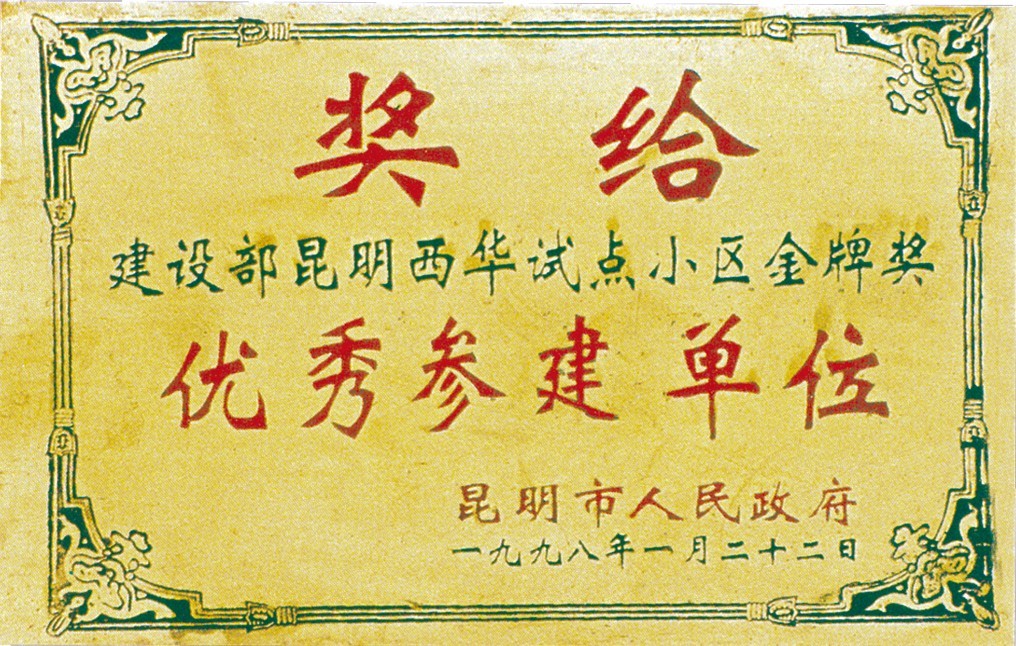 奖给
建设部昆明西华试点小区金牌奖
优秀参建单位
昆明市人民政府
一九九八年一月二十二日